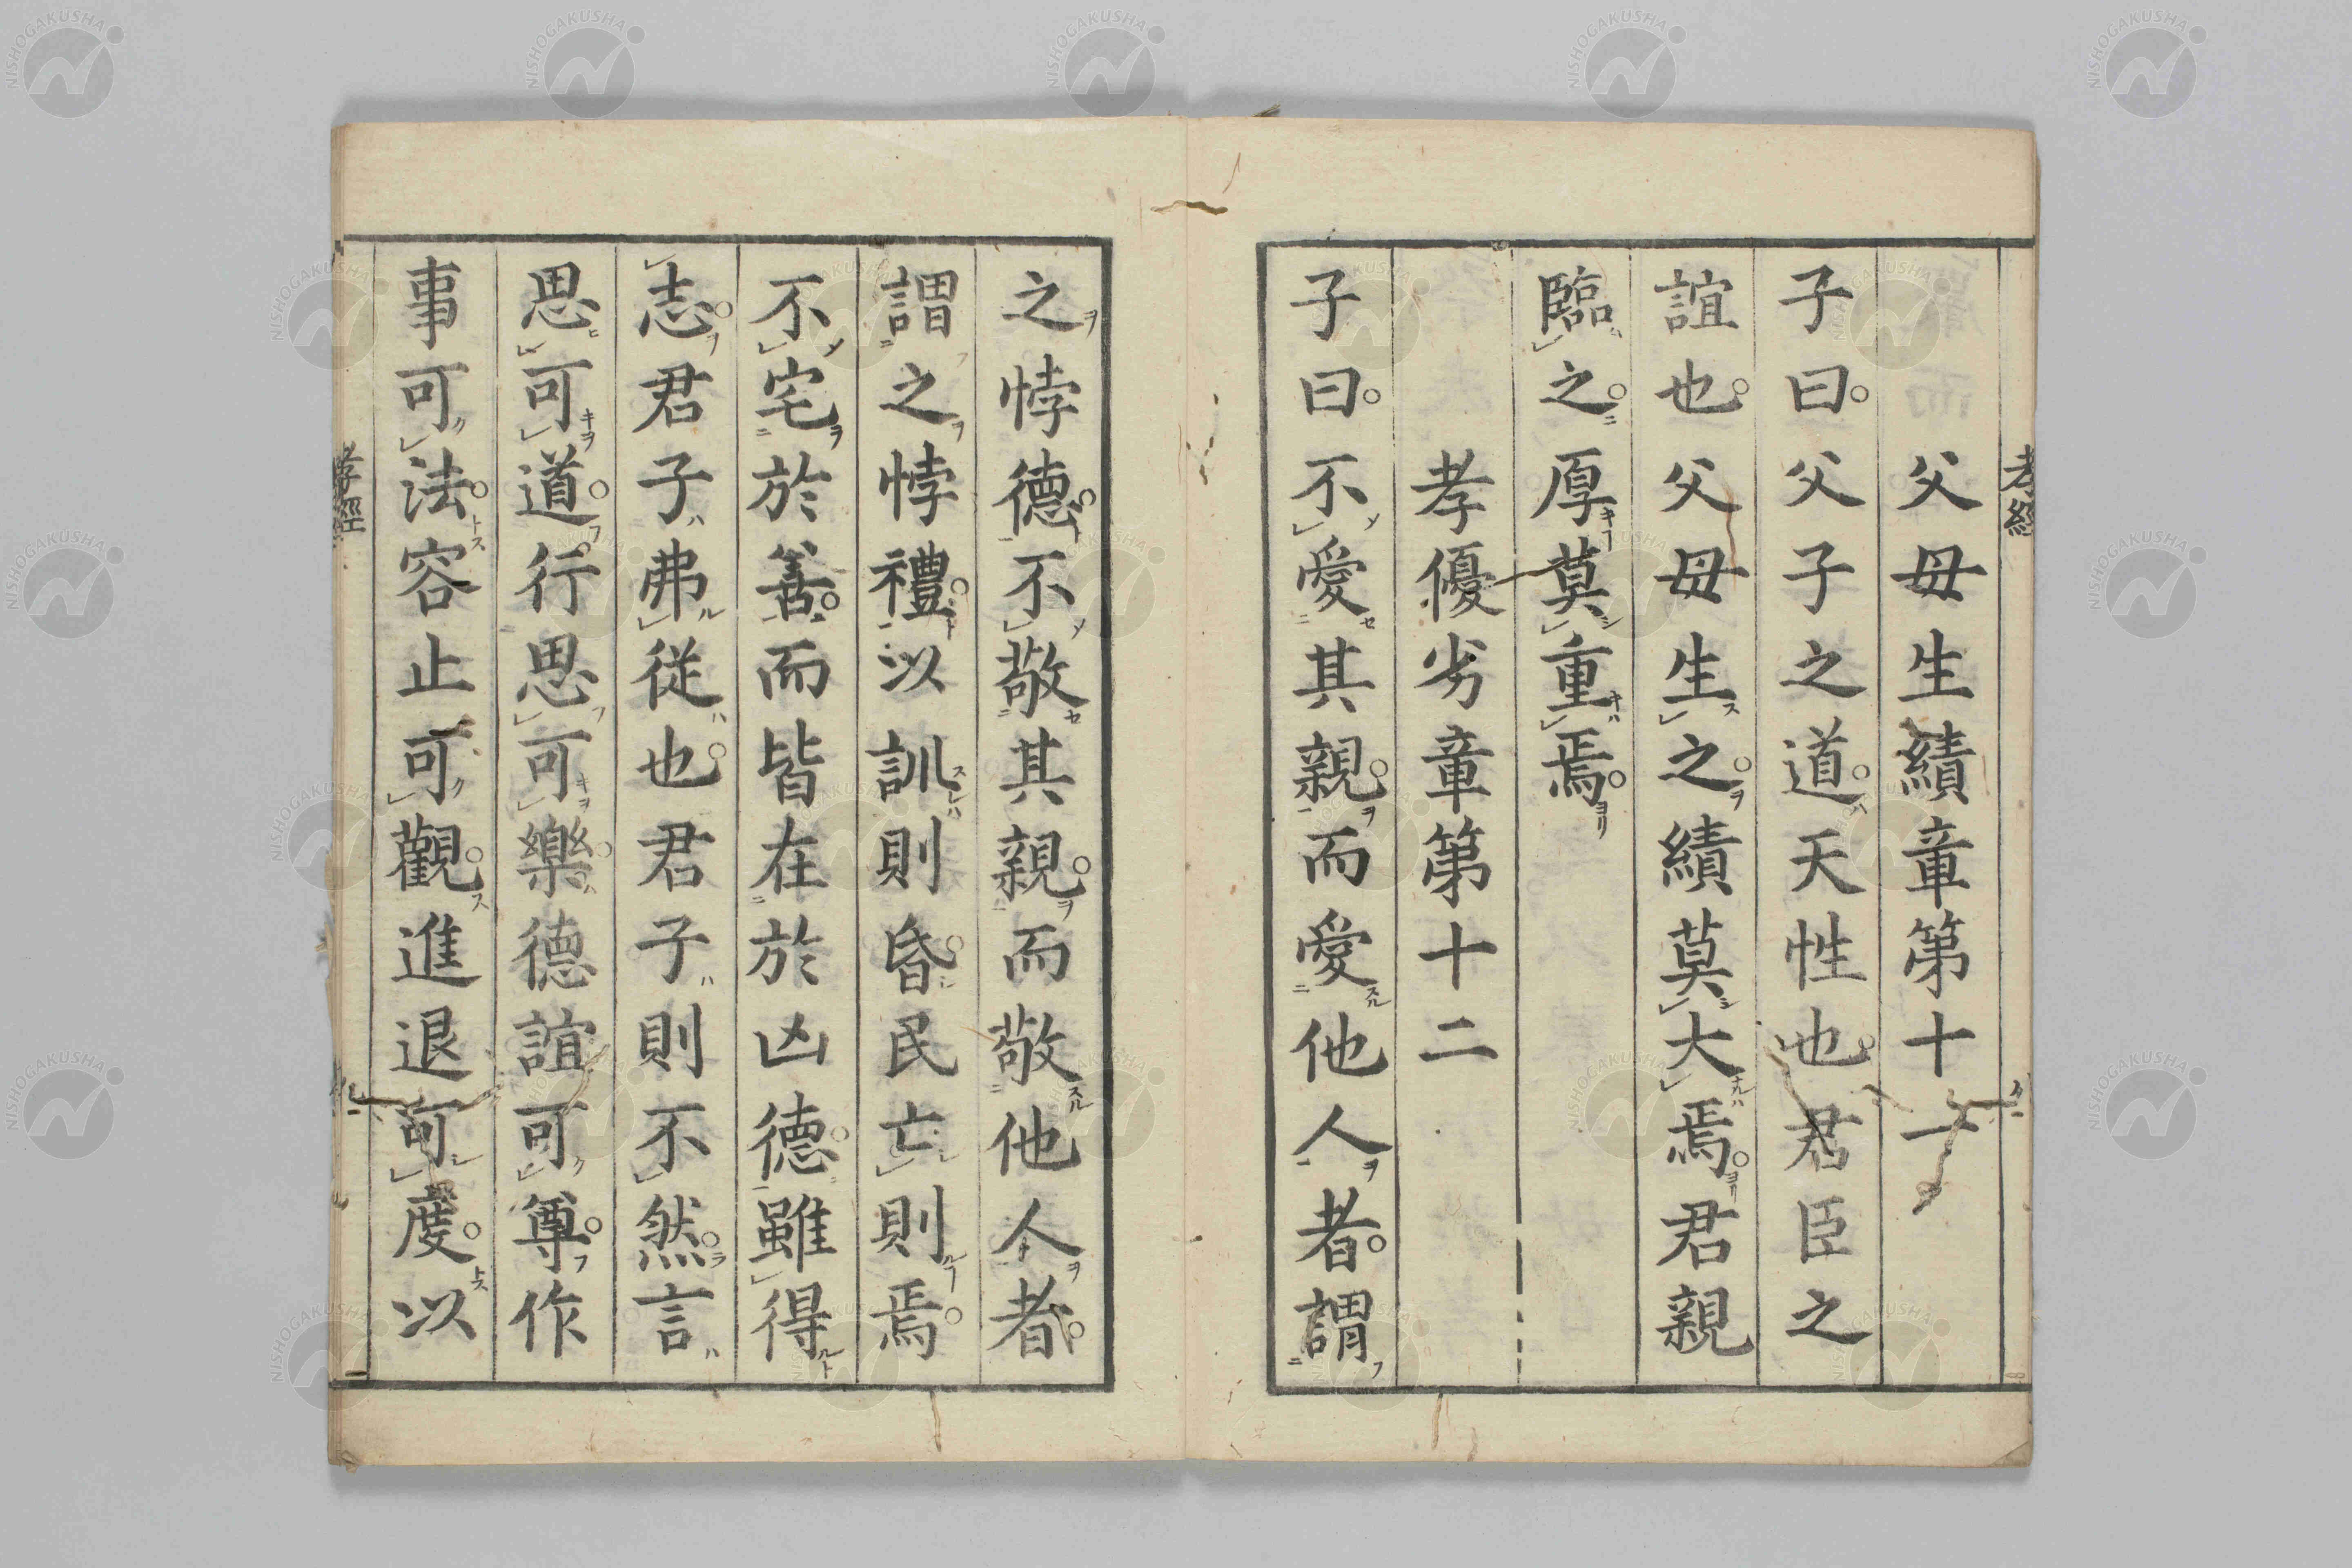 父母生績章第十一
子曰父子之道天性也君臣之
誼也父母生之績莫大焉君親
臨之厚莫重焉
孝優劣章第十二
子曰不愛其親而愛他人者謂
之悖德不敬其親而敬他人者
謂之悖禮以訓則昏民亡則焉
不宅於善而皆在於凶德雖得
志君子弗從也君子則不然言
思可道行思可樂德誼可尊作
事可法容止可觀進退可度以
孝經